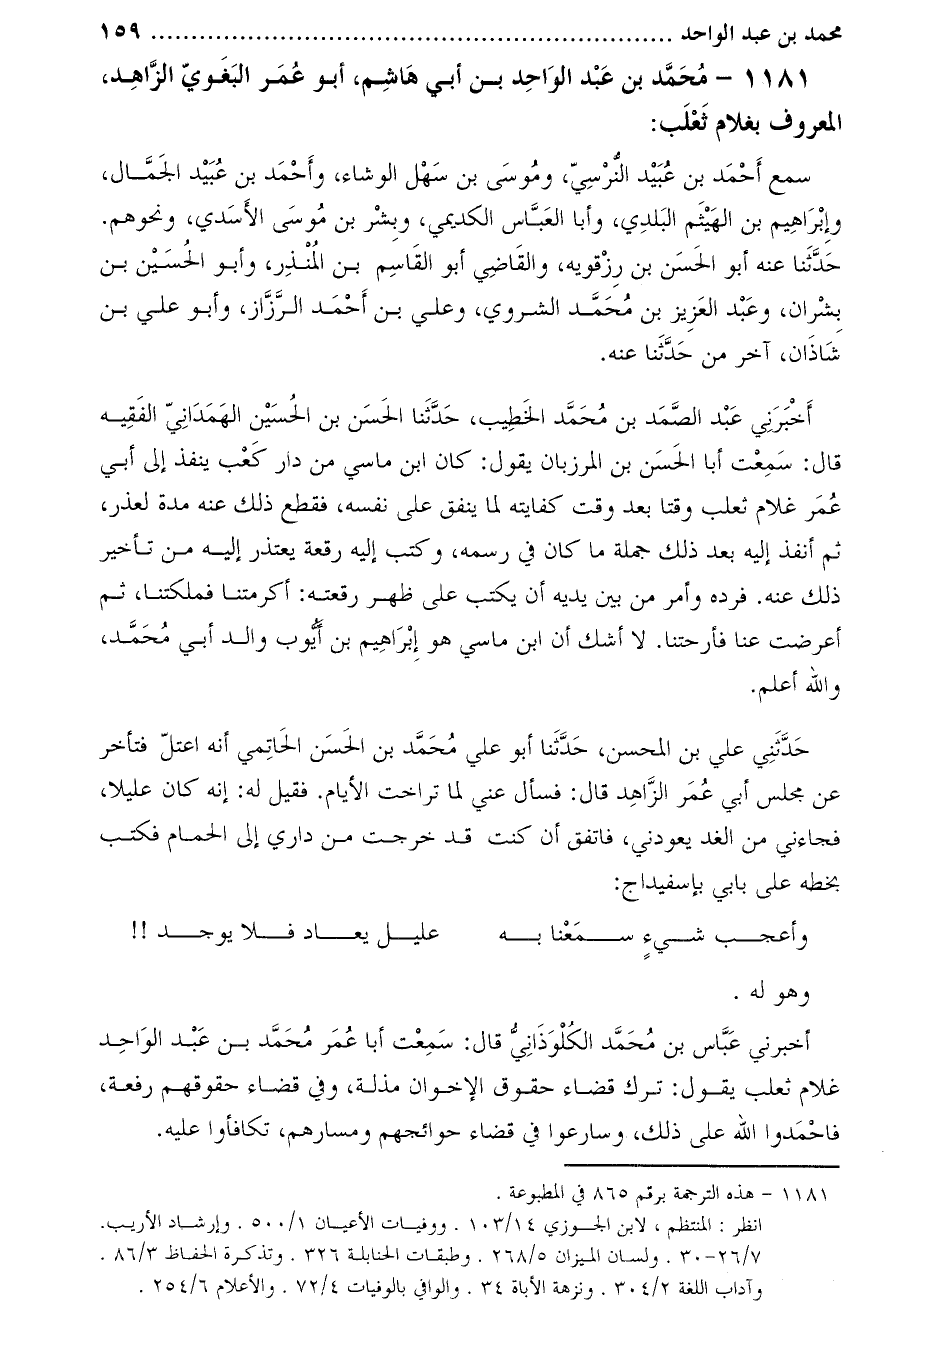 محمد بن عبد الواحد ................................................................ ١٥٩
١١٨١ – مُحَمَّد بن عَبْد الوَاحِد بـن أبـي هَاشِم، أبـو عُمَر البَغَويّ الزَّاهِـد،
المعروف بغلام ثَعْلَب:
سمع أَحْمَد بن عُبَيْد النُّرْسِيّ، ومُوسَى بن سَهْل الوشاء، وأَحْمَد بن عُبَيْد الجَمَّـال،
وإبْرَاهِيم بن الهَيْثم البَلدِي، وأبا العَبَّاس الكديمي، وبِشْر بن مُوسَى الأَسَدي، ونحوهم.
حَدَّثَنا عنه أبو الحَسَن بن رِزْقويه، والقَاضِي أبو القَاسِم بـن المُنْـذِر، وأبـو الحُسَـيْن بـن
بِشْران، وعَبْد العَزيز بن مُحَمَّـد الشروي، وعلـي بـن أَحْمَـد الـرَّزَّاز، وأبـو علي بـن
شَاذَان، آخر من حَدَّثَنا عنه.
أَخْبَرَنِي عَبْد الصَّمَد بن مُحَمَّد الخَطِيب، حَدَّثَنا الحَسَن بن الحُسَيْن الهَمَدَانِيّ الفَقِيـه
قال: سَمِعْت أبا الحَسَن بن المرزبان يقول: كان ابن ماسي من دار كَعْب ينفذ إلى أبـي
عُمَر غلام ثعلب وقتا بعد وقت كفايته لما ينفق على نفسه، فقطع ذلك عنه مدة لعذر،
ثم أنفذ إليه بعد ذلك جملة ما كان في رسمه، وكتب إليه رقعة يعتذر إليـه مـن تـأخير
ذلك عنه. فرده وأمر من بين يديه أن يكتب على ظهـر رقعتـه: أكرمتنـا فملكتنـا، ثـم
أعرضت عنا فأرحتنا. لا أشك أن ابن ماسي هو إبْرَاهِيم بن أَيُّوب والـد أبـي مُحَمَّـد،
والله أعلم.
حَدَّثَنِي علي بن المحسن، حَدَّثَنا أبو علي مُحَمَّد بن الحَسَن الحَاتِمي أنه اعتلّ فتأخر
عن مجلس أبي عُمَر الزَّاهِد قال: فسأل عني لما تراخت الأيام. فقيل له: إنه كان عليلا،
فجاءني من الغد يعودني، فاتفق أن كنت قـد خرجـت مـن داري إلى الحمـام فكتـب
بخطه على بابي بإسفيداج:
وأعجـب شـيءٍ سـمَعْنا بـه عليـل يعـاد فـلا يوجـد !!
وهو له .
أخبرني عَبَّاس بن مُحَمَّد الكُلْوَذَانِيُّ قال: سَمِعْت أبا عُمَر مُحَمَّد بـن عَبْـد الوَاحِـد
غلام ثعلب يقـول: تـرك قضـاء حقـوق الإخـوان مذلـة، وفي قضـاء حقوقهـم رفعـة،
فاحْمَدوا الله على ذلك، وسارعوا في قضاء حوائجهم ومسارهم، تكافأوا عليه.
١١٨١ – هذه الترجمة برقم ٨٦٥ في المطبوعة .
انظر : المنتظم ، لابن الجوزي ١٠٣/١٤ . ووفيات الأعيان ٥٠٠/١ . وإرشاد الأريب.
٢٦/٧–٣٠ . ولسان الميزان ٢٦٨/٥ . وطبقات الحنابلة ٣٢٦ . وتذكرة الحفاظ ٨٦/٣ .
وآداب اللغة ٣٠٤/٢ . ونزهة الأباة ٣٤ . والوافي بالوفيات ٧٢/٤ . والأعلام ٢٥٤/٦ .